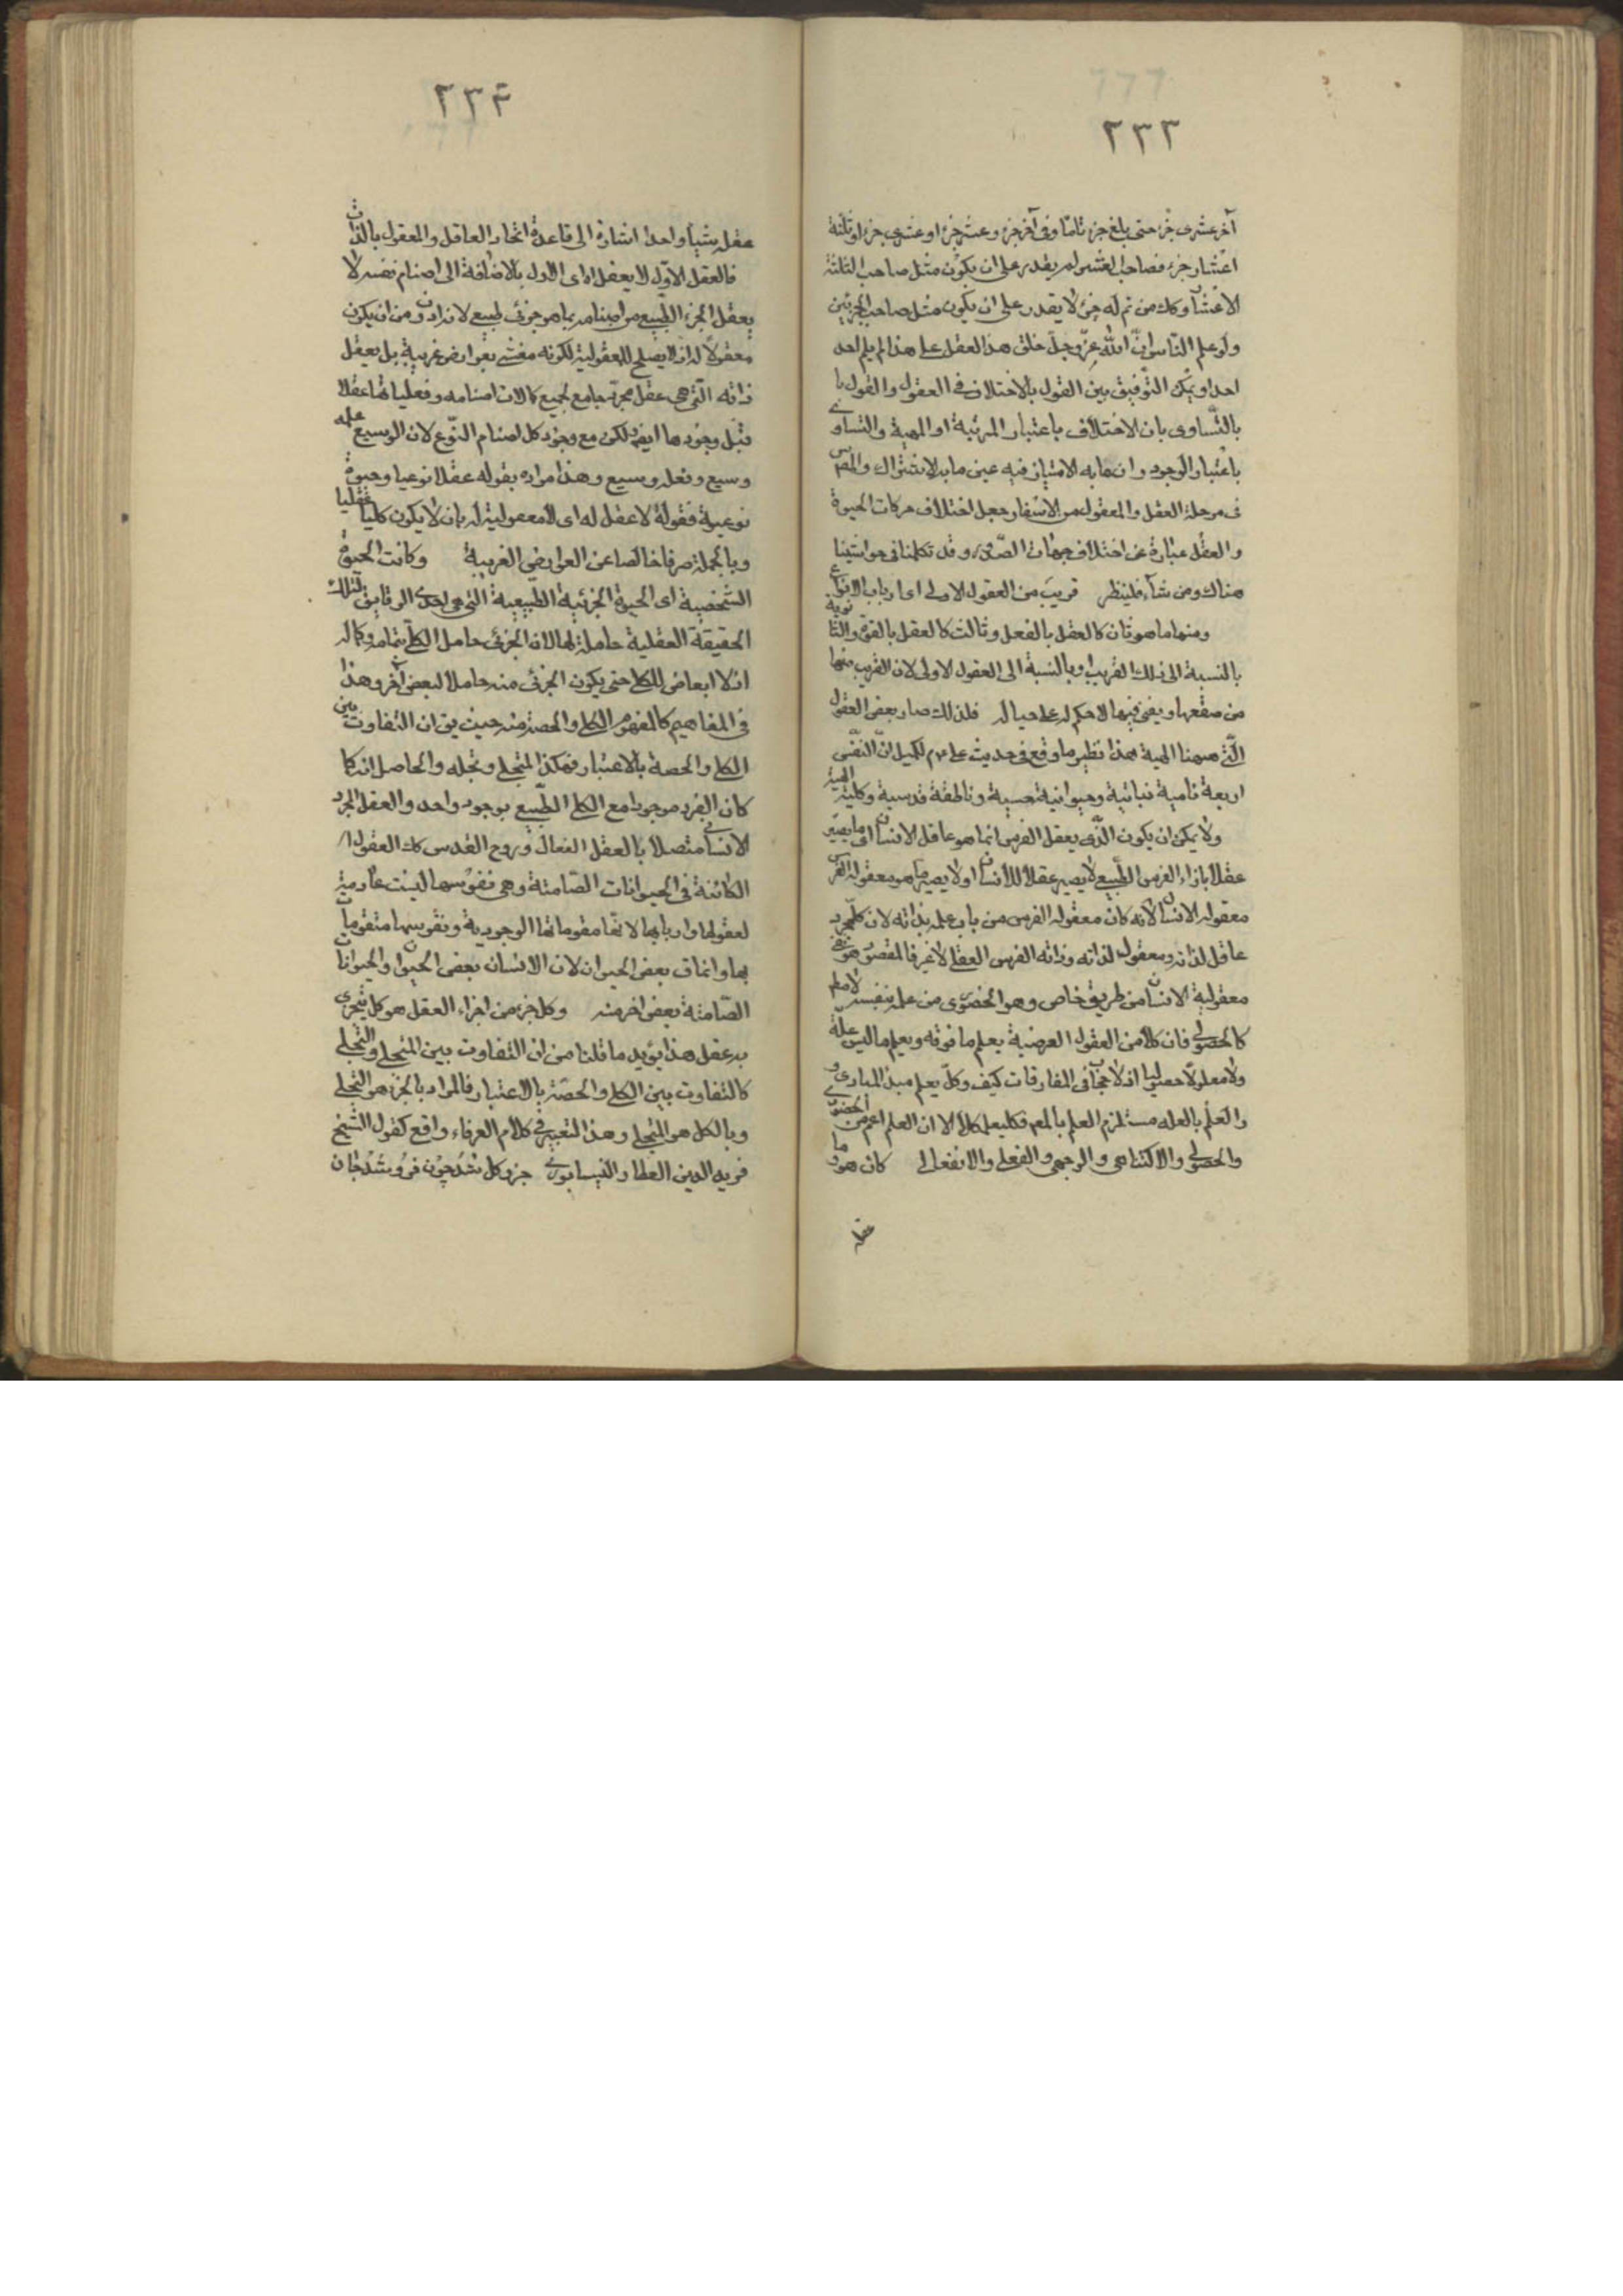 ٢٣٣
آخر عشرى جزء حتى بلغ جزء تامّا وفى آخر جزء وعشر جزء او عشرى جزء او ثلثة
اعشار جزء فصاحب العشر لم يقدر على ان يكون مثل صاحب الثلثة
الاعشار وكك من تم له جزء لا يقدر على ان يكون مثل صاحب الجزئين
ولو علم الناس انّ الله عزّ وجلّ خلق هذا العقل على هذا لم يلم احد
احدا ويمكن التوفيق بين القول بالاختلاف فى العقول والقول با
بالتّساوى بان الاختلاف باعتبار المرتبة او المهية والتساوى
باعتبار الوجود وان ما به الامتياز فيه عين ما به الاشتراك والمص
فى مرحلة العقل والمعقول من الاسفار جعل اختلاف حركات الحيوة
والعقل عبارة عن اختلاف جهات الصّدور وقد تكلمنا فى حواشينا
هناك ومن شآء فلينظر قريب من العقول الاولى اى ارباب الانواع
ومنها ما هو ثان كالعقل بالفعل وثالث كالعقل بالقوّة والثانوية
بالنسبة الى ذلك القريب او بالنسبة الى العقول الاولى لان القريب منها
من صقعها ويفنى فيها لا حكم له على حياله فلذلك صار بعض العقول
الّتى هيهنا الهية هذا نظير ما وقع فى حديث على عم لكميل انّ النّفس
اربعة نامية نباتية وحيوانية حسية وناطقة قدسية وكلية الهية
ولا يمكن ان يكون الّذى يعقل الفرس انما هو عاقل الانسان اى ما يصير
عقلا بازاء الفرس الطّبيعى لا يصير عقلا للانسان او لا يصير ما هو معقوله الفرس
معقوله الانسان لانه كان معقوله الفرس من باب علمه بذاته لان كل مجرد
عاقل لذاته ومعقول لذاته وذاته الفرس العقلى لا غير فالمقصود هو نفى
معقولية الانسان من طريق خاص وهو الحضورى من علمه بنفسه لا مطم
كالحصولى فان كلا من العقول العرضية يعلم ما فوقه ويعلم ما ليس علّة
ولا معلولا حصوليا اذ لا حجاب فى المفارقات كيف وكلّ يعلم مبدء المبادى و
والعلم بالعلة مستلزم العلم بالمعلول فكل يعلم كلا الا ان العلم اعم من الحضورى
والحصولى والاكتناهى والوجهى والفعلى والانفعالى كان هو وما
عقله
٢٣٤
عقله شيأ واحدا اشارة الى قاعدة اتحاد العاقل والمعقول بالذات
فالعقل الاوّل لا يعقل اه اى الاول بالاضافة الى اصنام نفسه لا
يعقل الجزء الطبيعى من اصنامه بما هو جزئى طبيعى لانه ادون من ان يكون
معقولا له اذ لا يصلح للمعقولية لكونه مغشى بعوارض غريبة بل يعقل
ذاته الّتى هى عقل مجرّد جامع لجميع كمالات اصنامه وفعلياتها عقلا
قبل وجودها ايضا لكن مع وجود كل اصنام النّوع لان الوسيع علمه
وسيع وفعله وسيع وهذا مراده بقوله عقلا نوعيا وحيوة
نوعية فقوله لا عقل له اى لا معقولية له بان لا يكون كليا عقليا
وبالجملة صرفا خالصا عن العوارض الغريبة وكانت الحيوة
الشّخصية اى الحيوة الجزئية الطّبيعية التى هى احدى الرقايق لتلك
الحقيقة العقلية حاملة لها لان الجزئى حامل الكلّى بتمامه وكماله
اذ لا ابعاض للكلى حتى يكون الجزئى منه حاملا لبعض آخر وهذا
فى المفاهيم كالمفهوم الكلى والحصة منه حيث يق ان التفاوت بين
الكلى والحصة بالاعتبار فهكذا المتجلى وتجليه والحاصل انه كما
كان الفرد موجودا مع الكلى الطّبيعى بوجود واحد والعقل المجرد
الانسانى متصلا بالعقل الفعال وروح القدس كك العقول ا
الكائنة فى الحيوانات الصّامتة وهى نفوسها ليست عادمة
لعقولها واربابها لانها مقوماتها الوجودية ونفوسها متقومات
بها وانما ق بعض الحيوان لان الانسان بعض الحيوان والحيوانات
الصّامتة بعض اخر منه وكل جزء من اجزاء العقل هو كل يتجزى
به عقل هذا يؤيد ما قلنا من ان التفاوت بين المتجلى والتجلى
كالتفاوت بين الكلى والحصّة بالاعتبار فالمراد بالجزء هو التجلى
وبالكل هو المتجلى وهذا التعبير فى كلام العرفاء واقع كقول الشيخ
فريد الدين العطار النيسابورى جزو كل شد چون فرو شد جان